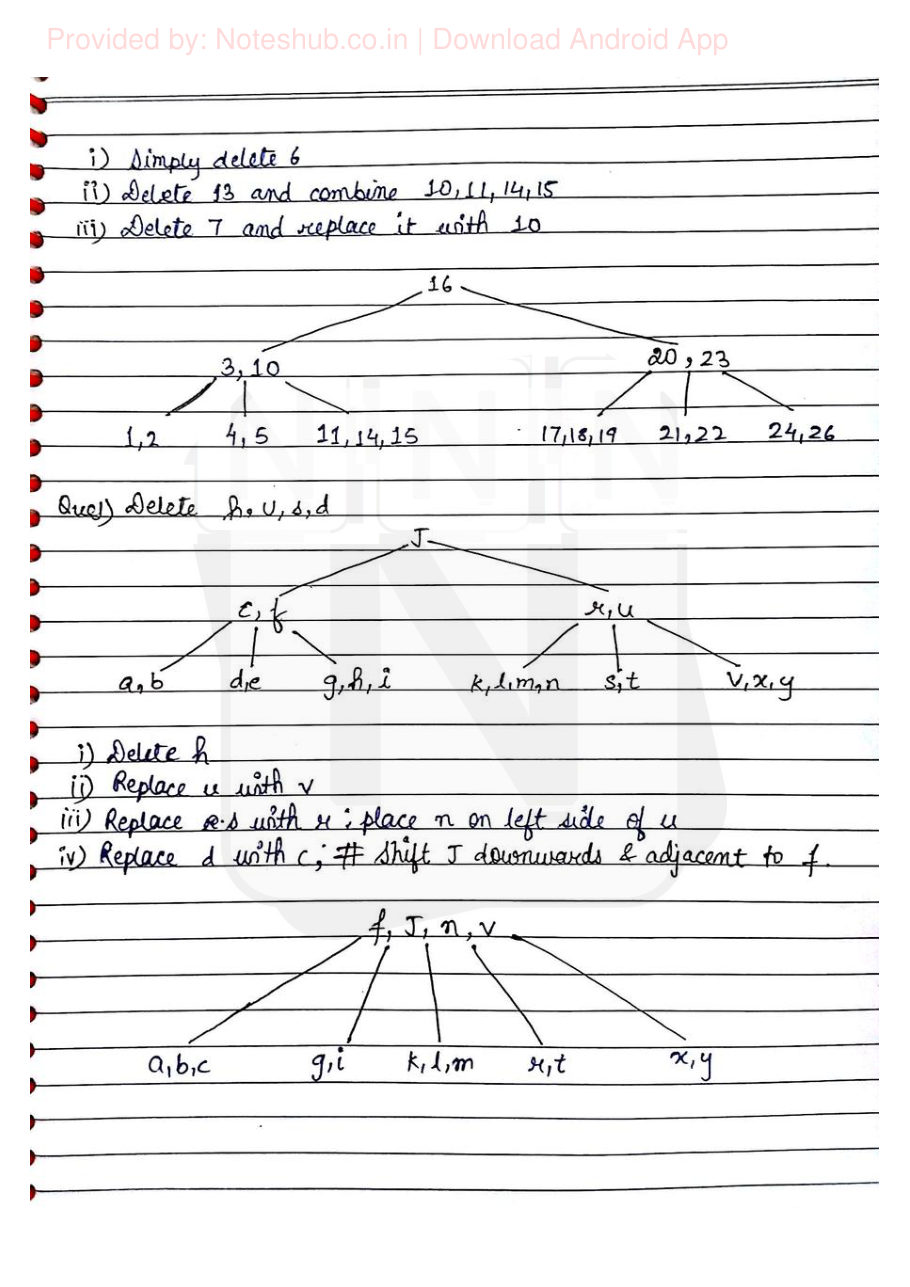 Provided by: Noteshub.co.in | Download Android App
i) Simply delete 6
ii) Delete 13 and combine 10,11,14,15
iii) Delete 7 and replace it with 10
16
3,10 20,23
1,2 4,5 11,14,15 17,18,19 21,22 24,26
Ques) Delete h, u, s, d
J
c,f r,u
a,b d,e g,h,i k,l,m,n s,t v,x,y
i) Delete h
ii) Replace u with v
iii) Replace s with r ; place n on left side of u
iv) Replace d with c; # Shift J downwards & adjacent to f.
f, J, n, v
a,b,c g,i k,l,m r,t x,y